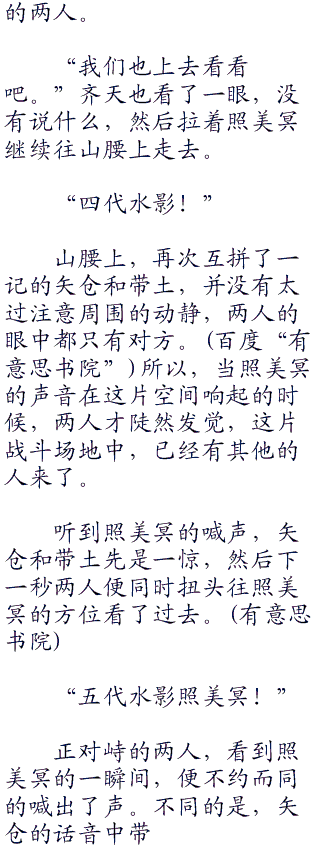 的两人。
“我们也上去看看
吧。”齐天也看了一眼，没
有说什么，然后拉着照美冥
继续往山腰上走去。
“四代水影！”
山腰上，再次互拼了一
记的矢仓和带土，并没有太
过注意周围的动静，两人的
眼中都只有对方。(百度“有
意思书院”)所以，当照美冥
的声音在这片空间响起的时
候，两人才陡然发觉，这片
战斗场地中，已经有其他的
人来了。
听到照美冥的喊声，矢
仓和带土先是一惊，然后下
一秒两人便同时扭头往照美
冥的方位看了过去。(有意思
书院)
“五代水影照美冥！”
正对峙的两人，看到照
美冥的一瞬间，便不约而同
的喊出了声。不同的是，矢
仓的话音中带